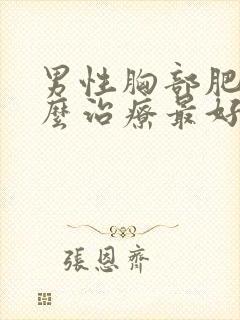 男性胸部肥
麼治療最好
張恩齊